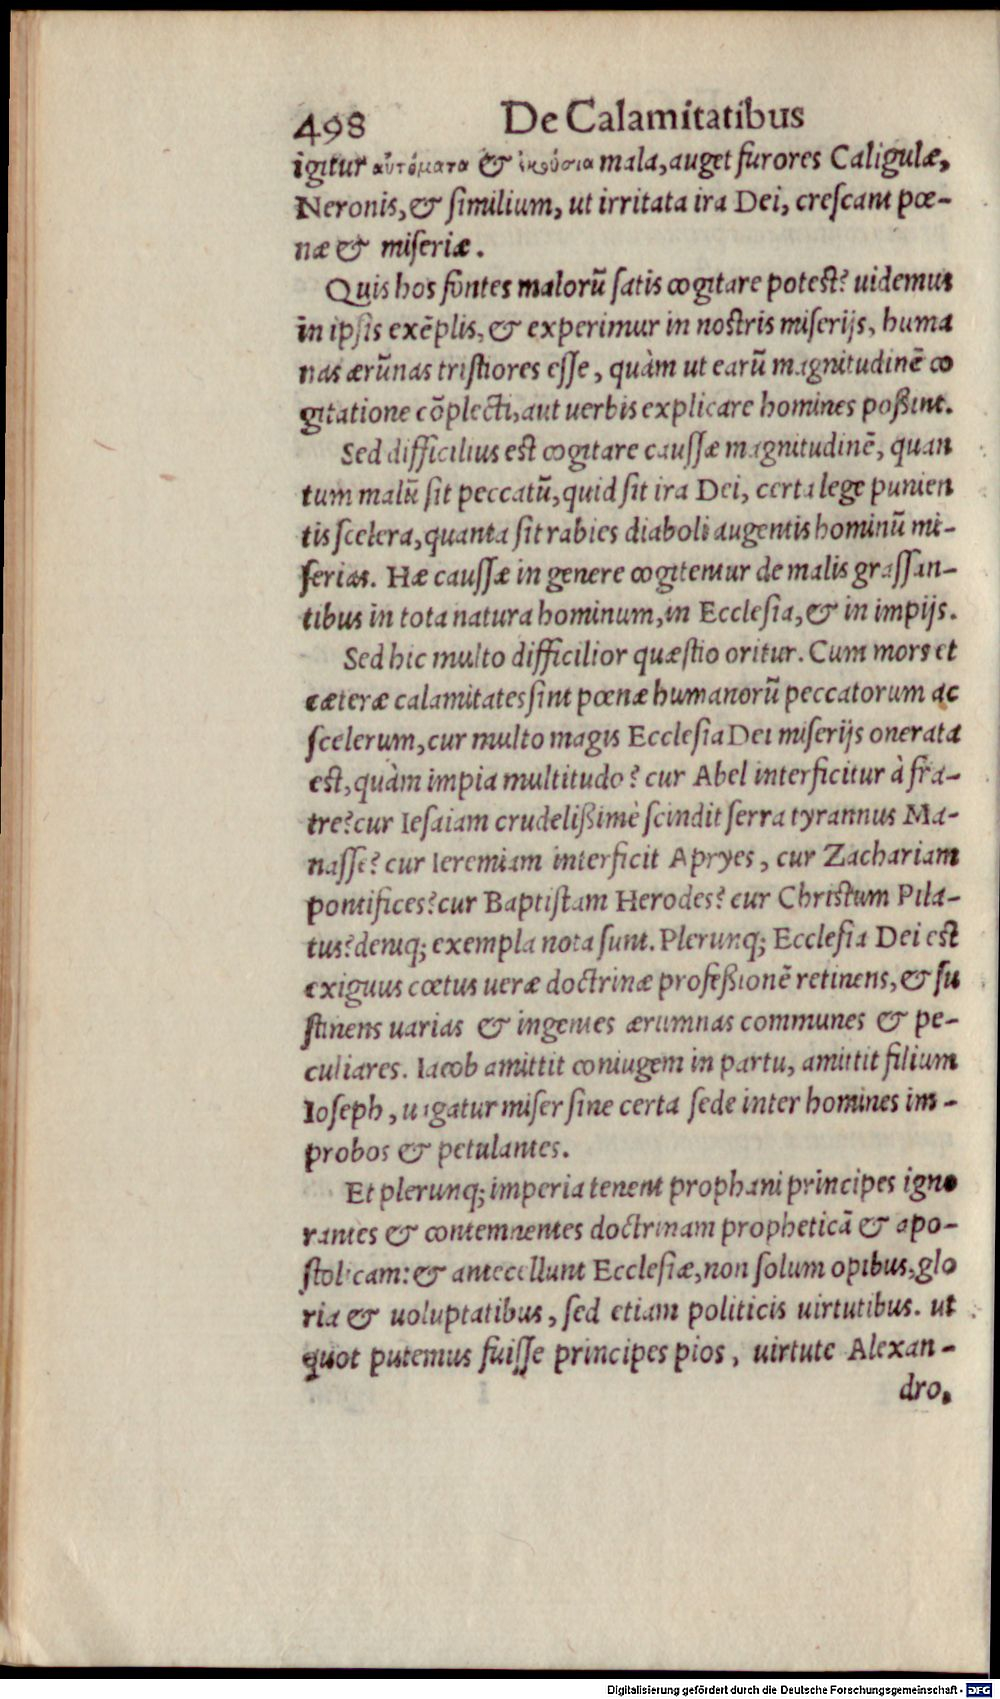 498 De Calamitatibus
igitur αὐτόματα & ἑκούσια mala, auget furores Caligulæ,
Neronis, & similium, ut irritata ira Dei, crescant pœ-
næ & miseriæ.
Quis hos fontes malorũ satis cogitare potest? uidemus
in ipsis exẽplis, & experimur in nostris miserijs, huma
nas ærũnas tristiores esse, quàm ut earũ magnitudinẽ co
gitatione cõplecti, aut uerbis explicare homines poßint.
Sed difficilius est cogitare caussæ magnitudinẽ, quan
tum malũ sit peccatũ, quid sit ira Dei, certa lege punien
tis scelera, quanta sit rabies diaboli augentis hominũ mi-
serias. Hæ caussæ in genere cogitentur de malis grassan-
tibus in tota natura hominum, in Ecclesia, & in impijs.
Sed hic multo difficilior quæstio oritur. Cum mors et
cæteræ calamitates sint pœnæ humanorũ peccatorum ac
scelerum, cur multo magis Ecclesia Dei miserijs onerata
est, quàm impia multitudo? cur Abel interficitur à fra-
tre? cur Iesaiam crudelißimè scindit serra tyrannus Ma-
nasse? cur Ieremiam interficit Apryes, cur Zachariam
pontifices? cur Baptistam Herodes? cur Christum Pila-
tus? deniq; exempla nota sunt. Plerunq; Ecclesia Dei est
exiguus cœtus ueræ doctrinæ profeßionẽ retinens, & su
stinens uarias & ingentes ærumnas communes & pe-
culiares. Iacob amittit coniugem in partu, amittit filium
Ioseph, uagatur miser sine certa sede inter homines im-
probos & petulantes.
Et plerunq; imperia tenent prophani principes igno
rantes & contemnentes doctrinam propheticã & apo-
stolicam: & antecellunt Ecclesiæ, non solum opibus, glo
ria & uoluptatibus, sed etiam politicis uirtutibus. ut
quot putemus fuisse principes pios, uirtute Alexan-
dro,
Digitalisierung gefördert durch die Deutsche Forschungsgemeinschaft - DFG